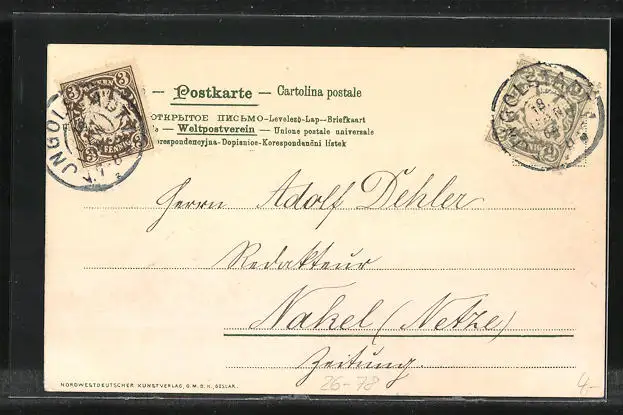 – Postkarte – Cartolina postale
ОТКРЫТОЕ ПИСЬМО–Levelező-Lap–Briefkaart
– Weltpostverein – Unione postale universale
Korespondencyjna–Dopisnice–Korespondanční lístek
3 3
PFENNIG
INGOLSTADT
INGOLSTADT
2
Herrn Adolf Dehler
Redakteur
Nakel (Netze)
Zeitung.
26-78
4.-
NORDWESTDEUTSCHER KUNSTVERLAG, G.M.B.H., GOSLAR.